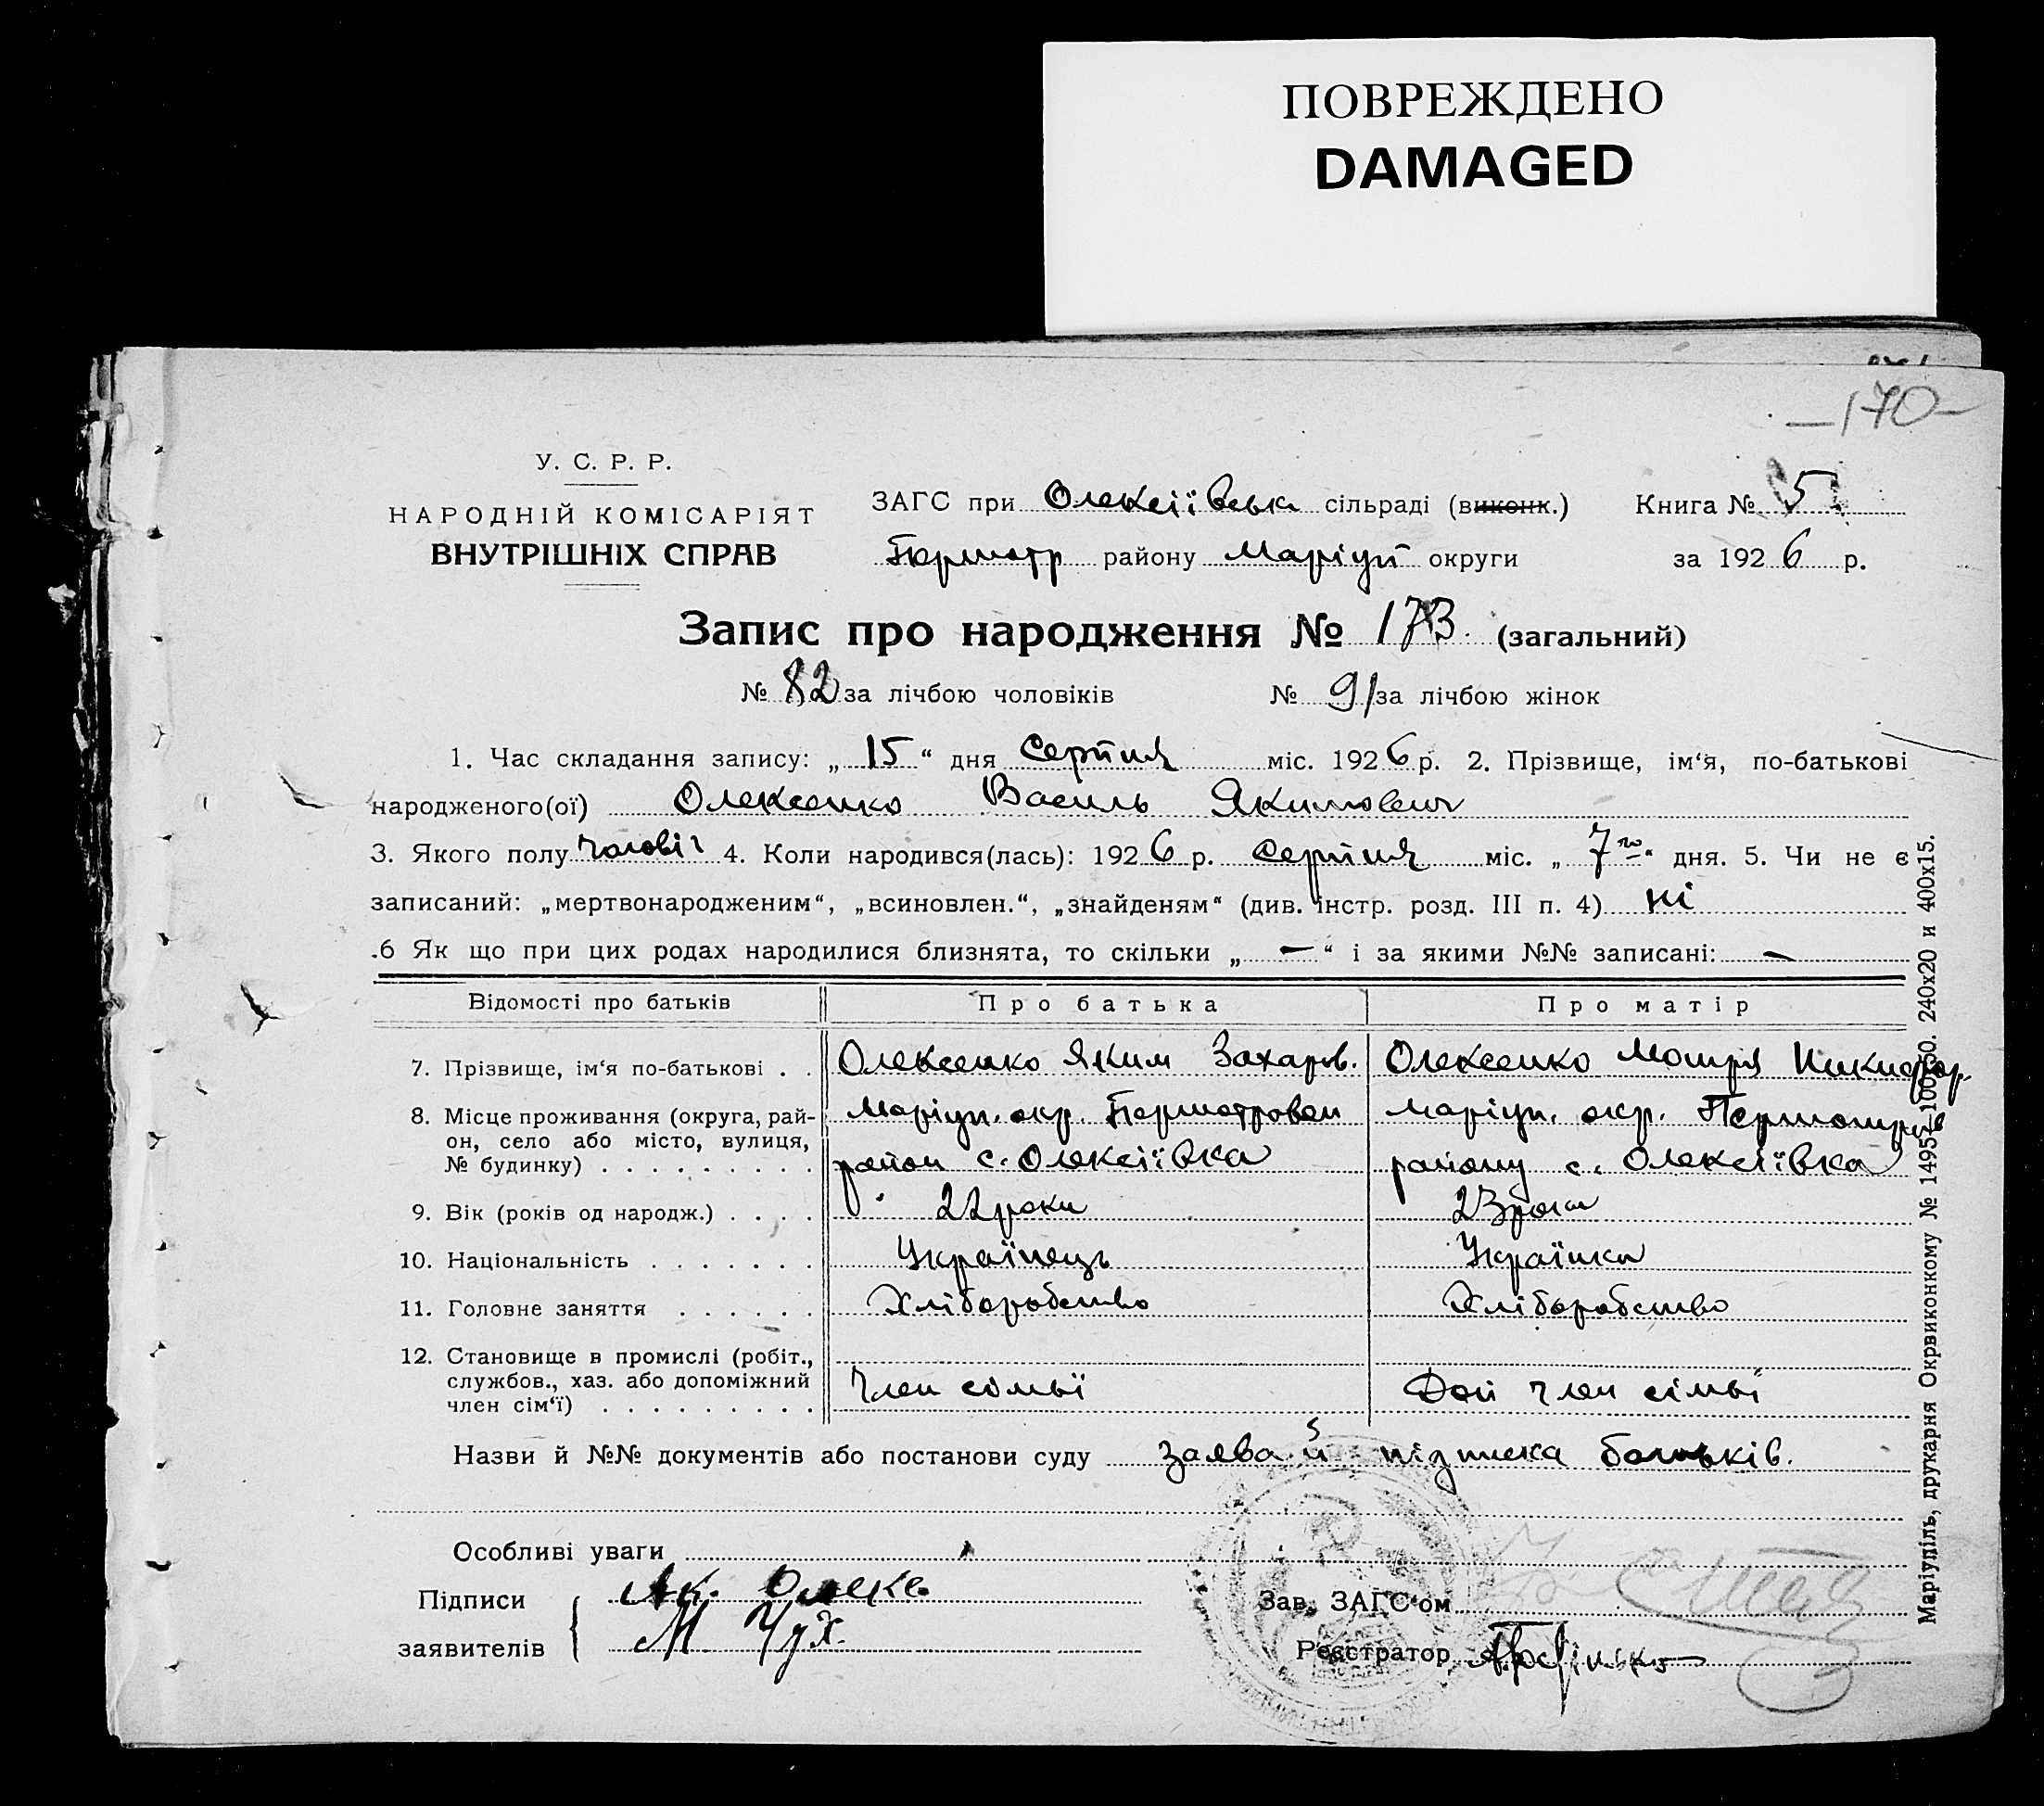 ПОВРЕЖДЕНО
DAMAGED
—170—
У. С. Р. Р.
НАРОДНІЙ КОМІСАРІЯТ
ВНУТРІШНІХ СПРАВ
ЗАГС при Олексіївськ сільраді (виконк.) Книга № 5
району Маріуп округи за 1926 р.
Запис про народження № 173. (загальний)
№ 82 за лічбою чоловіків № 91 за лічбою жінок
1. Час складання запису: „15“ дня Серпня міс. 1926 р. 2. Прізвище, ім‘я, по-батькові
народженого(ої) Олексенко Василь Якимович
3. Якого полу чоловіч 4. Коли народився(лась): 1926 р. Серпня міс. „7го“ дня. 5. Чи не є
записаний: „мертвонародженим“, „всиновлен.“, „знайденям“ (див. інстр. розд. III п. 4) ні
.6 Як що при цих родах народилися близнята, то скільки „—“ і за якими №№ записані: —
Відомості про батьків Про батька Про матір
7. Прізвище, ім‘я по-батькові . . Олексенко Яким Захаров. Олексенко Мотря Никифор.
8. Місце проживання (округа, рай- Маріуп. окр. маріуп. окр.
он, село або місто, вулиця,
№ будинку) . . . . . . . . . район с. Олексіївка району с. Олексіївка
9. Вік (років од народж.) . . . . 22 роки 23 роки
10. Національність . . . . . . . Українець Українка
11. Головне заняття . . . . . . Хліборобство Хліборобство
12. Становище в промислі (робіт.,
службов., хаз. або допоміжний Член сімьї Доп член сімьі
член сім‘ї) . . . . . . . . .
Назви й №№ документів або постанови суду заява й підписка батьків.
Особливі уваги
Підписи Як. Олекс
заявителів М Чух.
Зав. ЗАГС‘ом
Реєстратор
Маріупіль, друкарня Окрвиконкому № 1495—10050. 240х20 и 400х15.